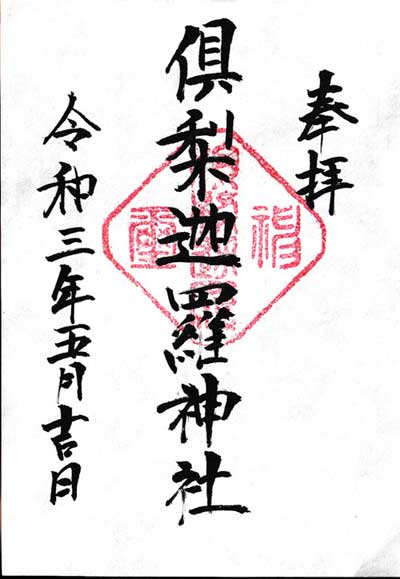 奉拝
倶梨迦羅神社
令和三年五月吉日